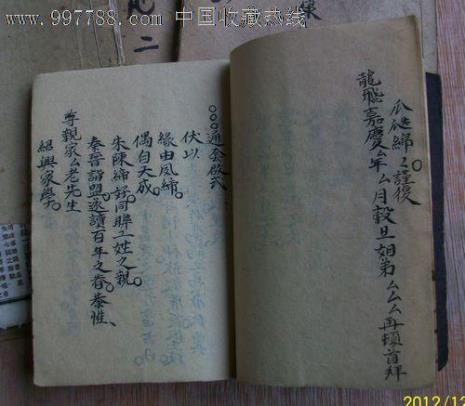 www.997788.com 中国收藏热线
瓜瓞綿綿謹復
龍飛嘉慶厶年厶月穀旦姻弟厶厶厶再頓首拜
通套啟式
伏以
緣由夙締
偶自天成
朱陳締好同聯二姓之親
秦晉諧盟遂讀百年之眷恭惟
尊親家厶老先生
紹興家學
2012/12